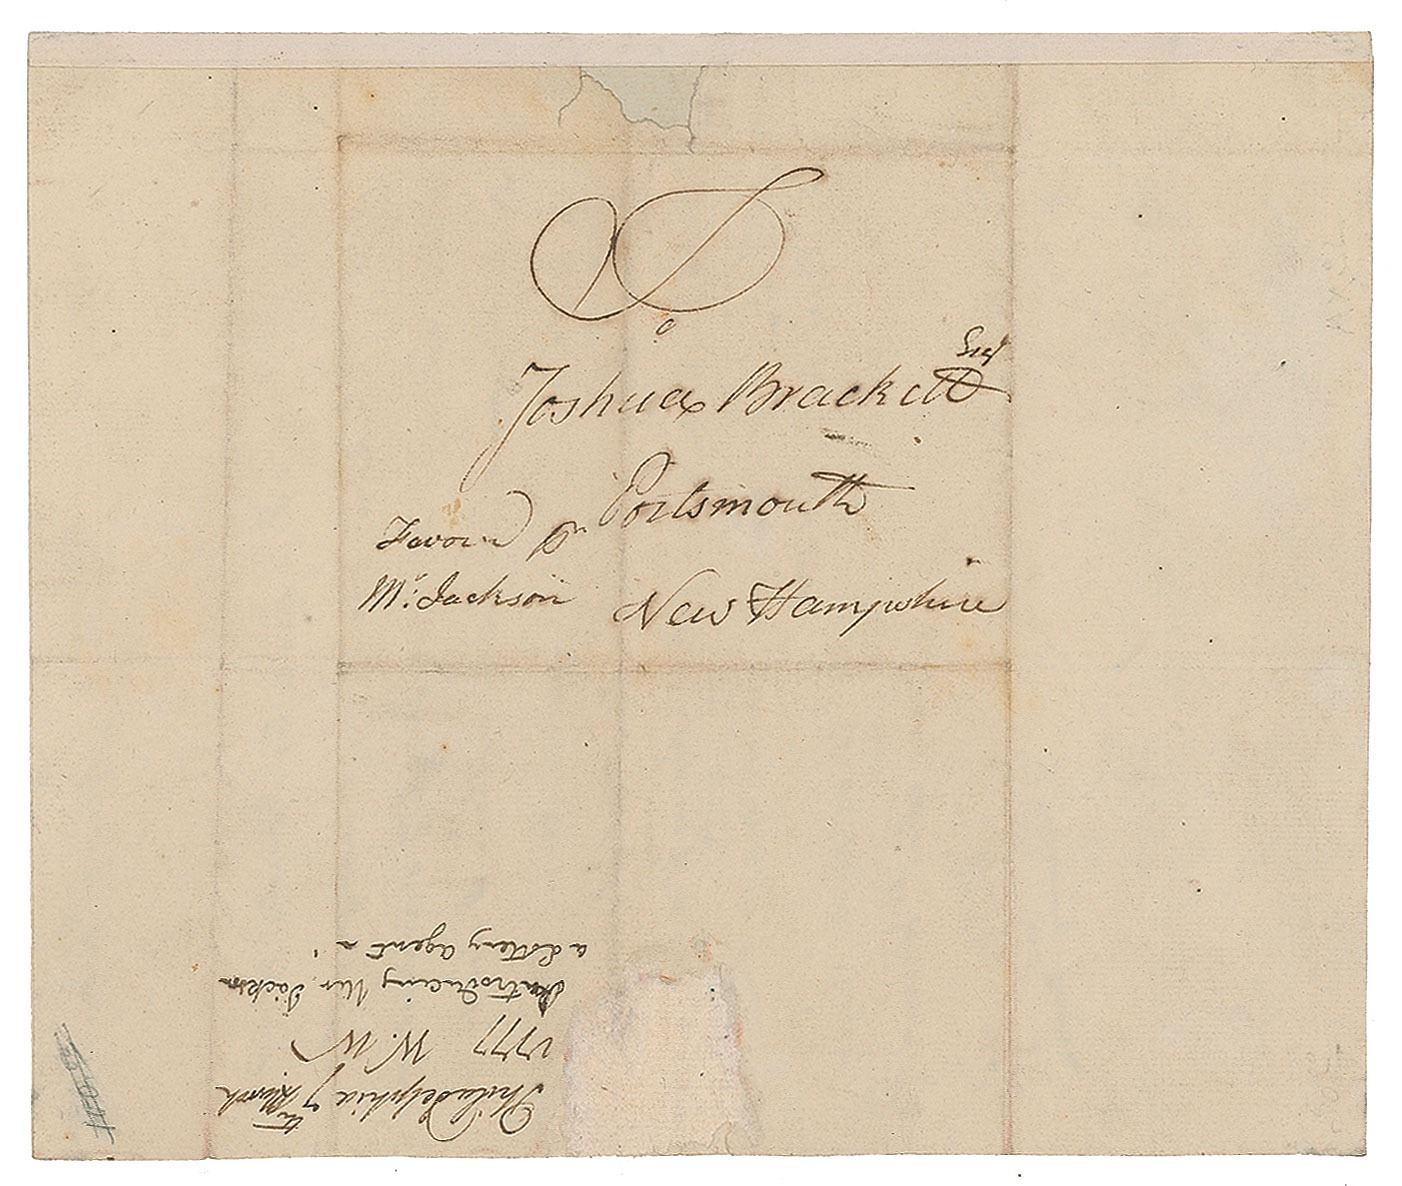 To
Joshua Brackett Esqr
Portsmouth
New Hampshire
Favourd pr
Mr. Jackson
Philadelphia 7th March
1777 W. W
Introducing Mr. Jackson
a Lottery agent